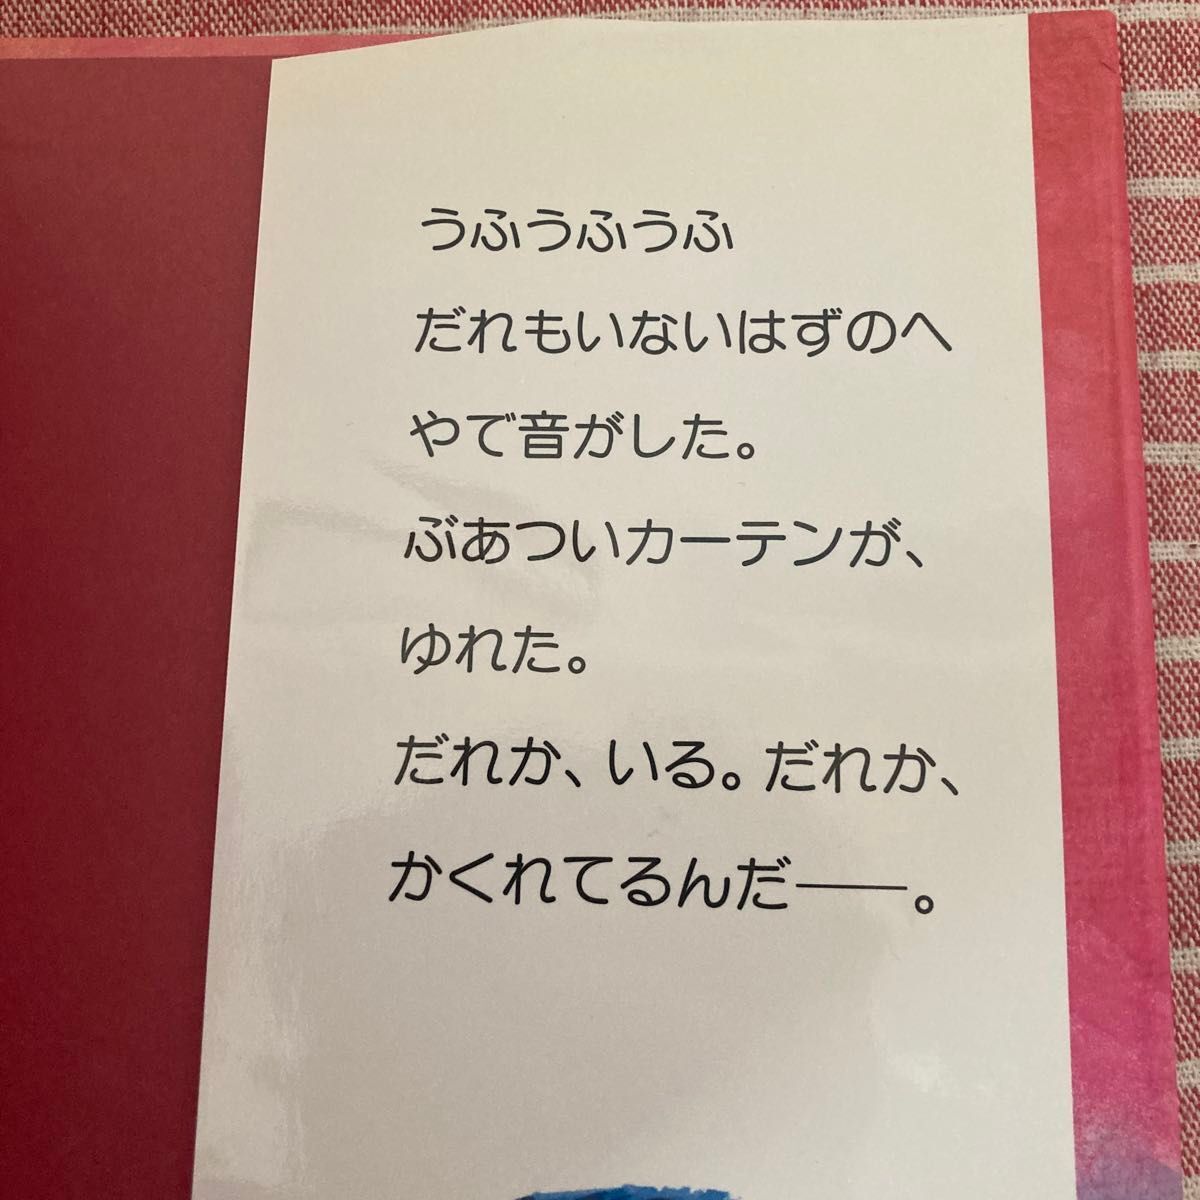 うふうふうふ
だれもいないはずのへ
やで音がした。
ぶあついカーテンが、
ゆれた。
だれか、いる。だれか、
かくれてるんだ――。